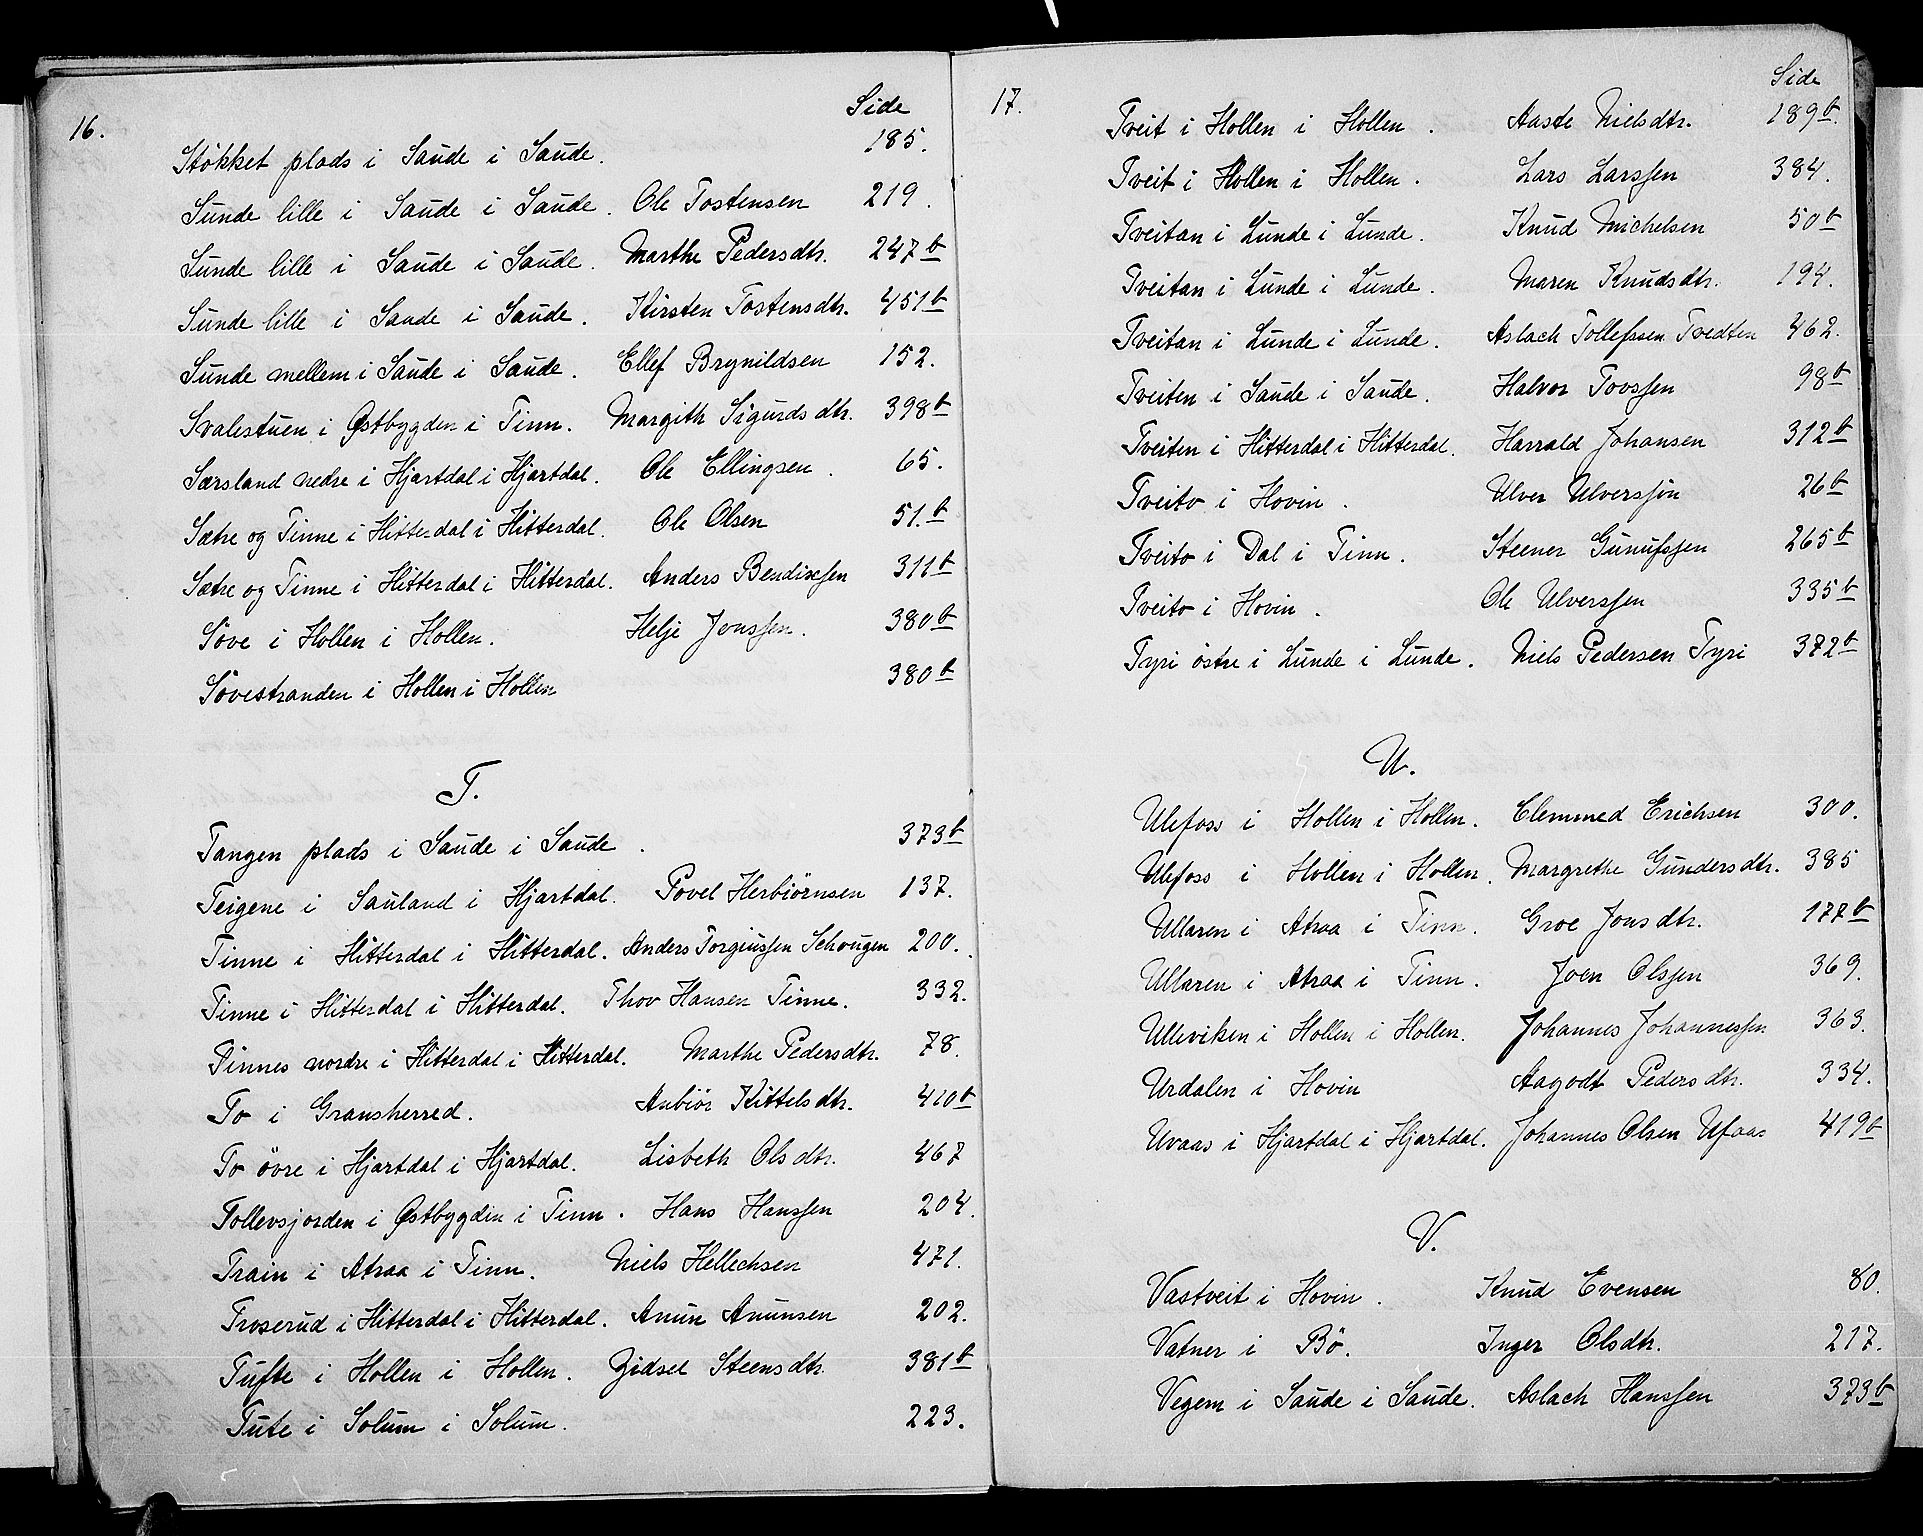 16.
Side
Støkket plads i Saude i Saude. 185.
Sunde lille i Saude i Saude. Ole Tostensen 219.
Sunde lille i Saude i Saude. Marthe Pedersdtr. 247b
Sunde lille i Saude i Saude. Kirsten Tostensdtr. 451b
Sunde mellem i Saude i Saude. Ellef Brynildsen 152.
Svalestuen i Østbygden i Tinn. Margith Sigurdsdtr. 398b
Særsland nedre i Hjartdal i Hjartdal. Ole Ellingsen. 65.
Sætre og Tinne i Hitterdal i Hitterdal. Ole Olsen 51.b
Sætre og Tinne i Hitterdal i Hitterdal. Anders Bendixsen 311b
Söve i Hollen i Hollen. Helje Jonssen. 380b
Sövestranden i Hollen i Hollen 380b
T.
Tangen plads i Saude i Saude. 373b
Teigene i Sauland i Hjartdal. Povel Herbiörnsen 137.
Tinne i Hitterdal i Hitterdal. Anders Torgiussen Schougen 200.
Tinne i Hitterdal i Hitterdal. Thov Hansen Tinne. 332.
Tinnes nordre i Hitterdal i Hitterdal. Marthe Pedersdtr. 78.
To i Gransherred. Anbiör Kittelsdtr. 410b
To övre i Hjartdal i Hjartdal. Lisbeth Olsdtr. 467
Tollevsjorden i Østbygden i Tinn. Hans Hanssen 204.
Train i Atraa i Tinn. Niels Hellechsen 471.
Troserud i Hitterdal i Hitterdal. Anun Anunsen 202.
Tufte i Hollen i Hollen. Zidsel Steensdtr. 381b
Tute i Solum i Solum. 223.
17.
Side
Tveit i Hollen i Hollen. Aaste Nielsdtr. 189b.
Tveit i Hollen i Hollen. Lars Larssen 384.
Tveitan i Lunde i Lunde. Knud Michelsen 50b
Tveitan i Lunde i Lunde. Maren Knudsdtr. 194.
Tveitan i Lunde i Lunde. Aslach Tollefssen Tvedten 462.
Tveiten i Saude i Saude. Halvor Tovssen 98b
Tveiten i Hitterdal i Hitterdal. Harrald Johansen 312b
Tveito i Hovin. Ulver Ulverssön 26b
Tveito i Dal i Tinn. Steener Gunufssen 265b
Tveito i Hovin. Ole Ulverssen 335b
Tyri östre i Lunde i Lunde. Niels Pedersen Tyri 372b
U.
Ulefoss i Hollen i Hollen. Clemmed Erichsen 300.
Ulefoss i Hollen i Hollen. Margrethe Gundersdtr. 385
Ullaren i Atraa i Tinn. Groe Jonsdtr. 177b
Ullaren i Atraa i Tinn. Joen Olssen 369.
Ulleviken i Hollen i Hollen. Johannes Johannessen 363.
Urdalen i Hovin Aagodt Pedersdtr. 334.
Uvaas i Hjartdal i Hjartdal. Johannes Olsen Ufaas 419b
V.
Vastveit i Hovin. Knud Evensen 80.
Vatner i Bö. Inger Olsdtr. 217.
Vegem i Saude i Saude. Aslach Hanssen 373b